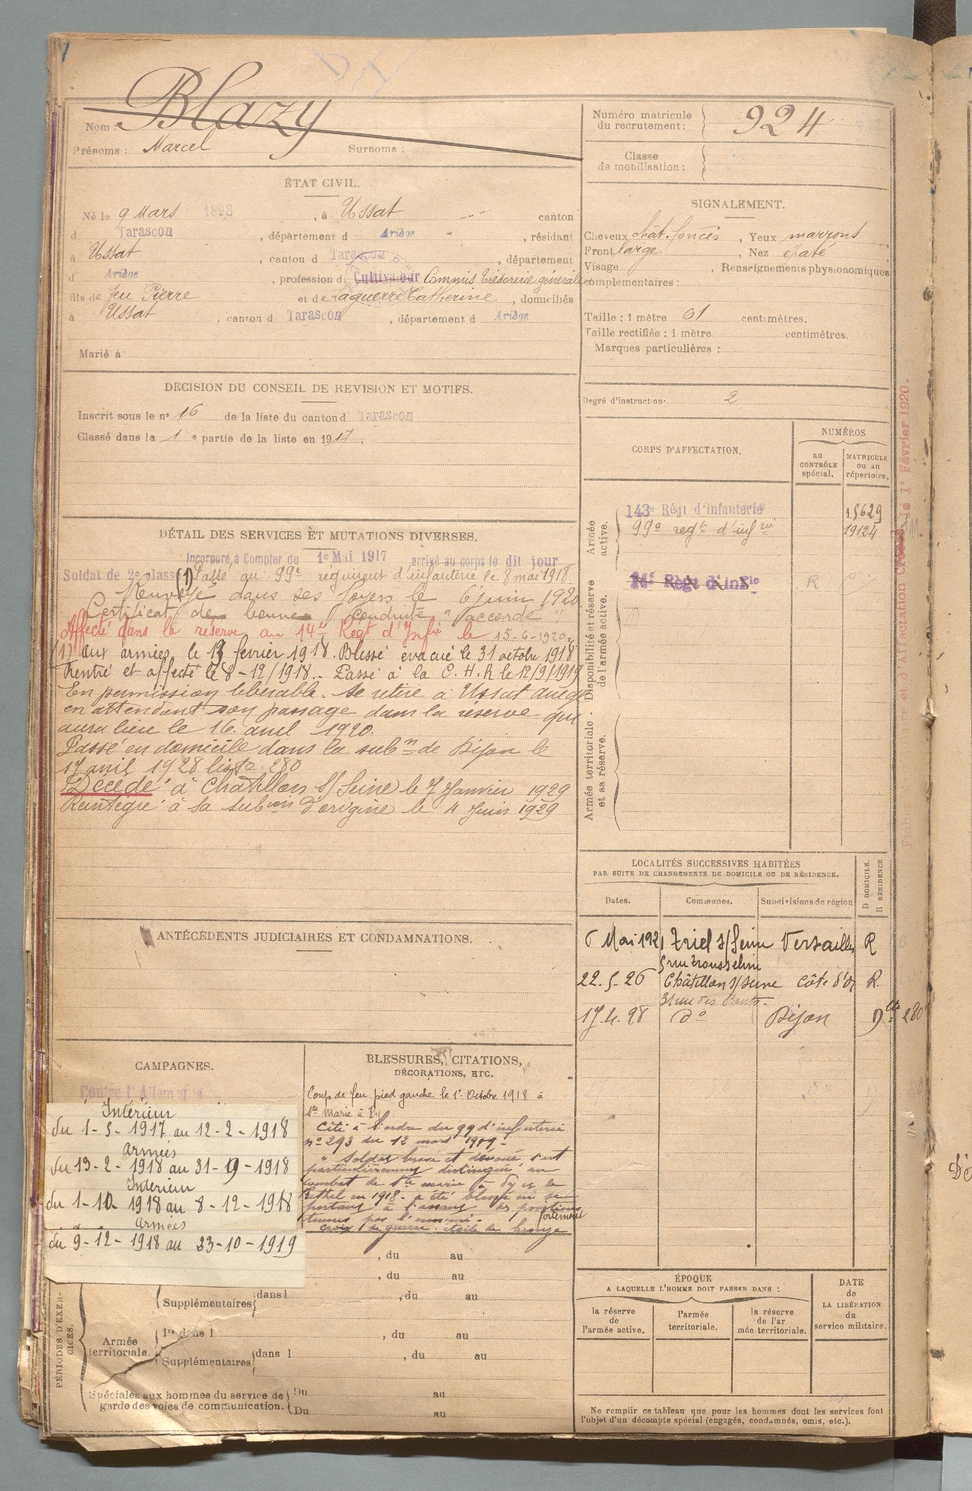 Nom : Blazy
Prénoms : Marcel Surnoms :
Numéro matricule du recrutement : 924
Classe de mobilisation :
ÉTAT CIVIL.
Né le 9 Mars 1898, à Ussat canton
d Tarascon, département d Ariège, résidant
à Ussat, canton d Tarascon, département
d Ariège, profession d Cultivateur Commis trésorerie générale
fils de feu Pierre et de Laguerre Catherine, domiciliés
à Ussat, canton d Tarascon, département d Ariège
Marié à
SIGNALEMENT.
Cheveux chât. foncés, Yeux marrons
Front large, Nez épaté
Visage , Renseignements physionomiques
complémentaires :
Taille : 1 mètre 61 centimètres.
Taille rectifiée : 1 mètre centimètres.
Marques particulières :
Degré d'instruction : 2
DÉCISION DU CONSEIL DE REVISION ET MOTIFS.
Inscrit sous le n° 16 de la liste du canton d Tarascon
Classé dans la 1e partie de la liste en 1917.
CORPS D'AFFECTATION.
NUMÉROS
au CONTRÔLE spécial.
MATRICULE ou au répertoire.
Armée active.
143e Régt d'infanterie 15629
99e regt d'infrie 19124
Disponibilité et réserve de l'armée active.
14e Régt d'Infie
Armée territoriale et sa réserve.
DÉTAIL DES SERVICES ET MUTATIONS DIVERSES.
Incorporé à Compter du 1e Mai 1917 arrivé au corps le dit jour
Soldat de 2e classe (1) Passé au 99e régiment d'infanterie le 8 mai 1918.
Renvoyé dans ses foyers le 6 juin 1920
Certificat de bonne conduite "accordé"
Affecté dans la réserve au 14e Régt d'Infie le 15-6-1920.
(1) aux armées, le 13 février 1918. Blessé évacué le 31 octobre 1918
Rentré et affecté le 8-12/1918. Passé à la C.H.R le 12/9/1919
En permission libérable. Se retire à Ussat
en attendant son passage dans la réserve qui
aura lieu le 16 avril 1920.
Passé en domicile dans la subon de Dijon le
17 avril 1928 liste 280
Décédé à Chatillon s/Seine le 7 Janvier 1929
Réintégré à sa subon d'origine le 4 Juin 1929
ANTÉCÉDENTS JUDICIAIRES ET CONDAMNATIONS.
LOCALITÉS SUCCESSIVES HABITÉES
PAR SUITE DE CHANGEMENTS DE DOMICILE OU DE RÉSIDENCE.
Dates. Communes. Subdivisions de région
D DOMICILE. R RÉSIDENCE
6 Mai 1921 Triel s/Seine Versailles R
5 rue Trousseline
22.5.26 Châtillon s/Seine Côte d'Or R.
17.4.28 do Dijon D 280
CAMPAGNES.
Contre l'Allemagne
Intérieur
du 1-5-1917 au 12-2-1918
Armées
du 13-2-1918 au 31-9-1918
Intérieur
du 1-10-1918 au 8-12-1918
Armées
du 9-12-1918 au 23-10-1919
BLESSURES, CITATIONS,
DÉCORATIONS, ETC.
Coup de feu pied gauche le 1er Octobre 1918 à
Ste Marie à Py
Cité à l'ordre du 99 d'infanterie
n° 293 du 12 mars 1919
"Soldat brave et dévoué s'est
particulièrement distingué au
combat de Ste Marie à Py et
Rethel en 1918. a été blessé en se
portant à l'assaut des positions fortement
tenues par l'ennemi."
Croix de guerre. étoile de bronze
, du au
, du au
Supplémentaires dans l , du au
PÉRIODES D'EXERCICES.
Armée territoriale.
1re dans l , du au
Supplémentaires dans l , du au
Spéciales aux hommes du service de garde des voies de communication.
Du au
Du au
ÉPOQUE
A LAQUELLE L'HOMME DOIT PASSER DANS :
la réserve de l'armée active.
l'armée territoriale.
la réserve de l'armée territoriale.
DATE de LA LIBÉRATION du service militaire.
Ne remplir ce tableau que pour les hommes dont les services font
l'objet d'un décompte spécial (engagés, condamnés, omis, etc.).